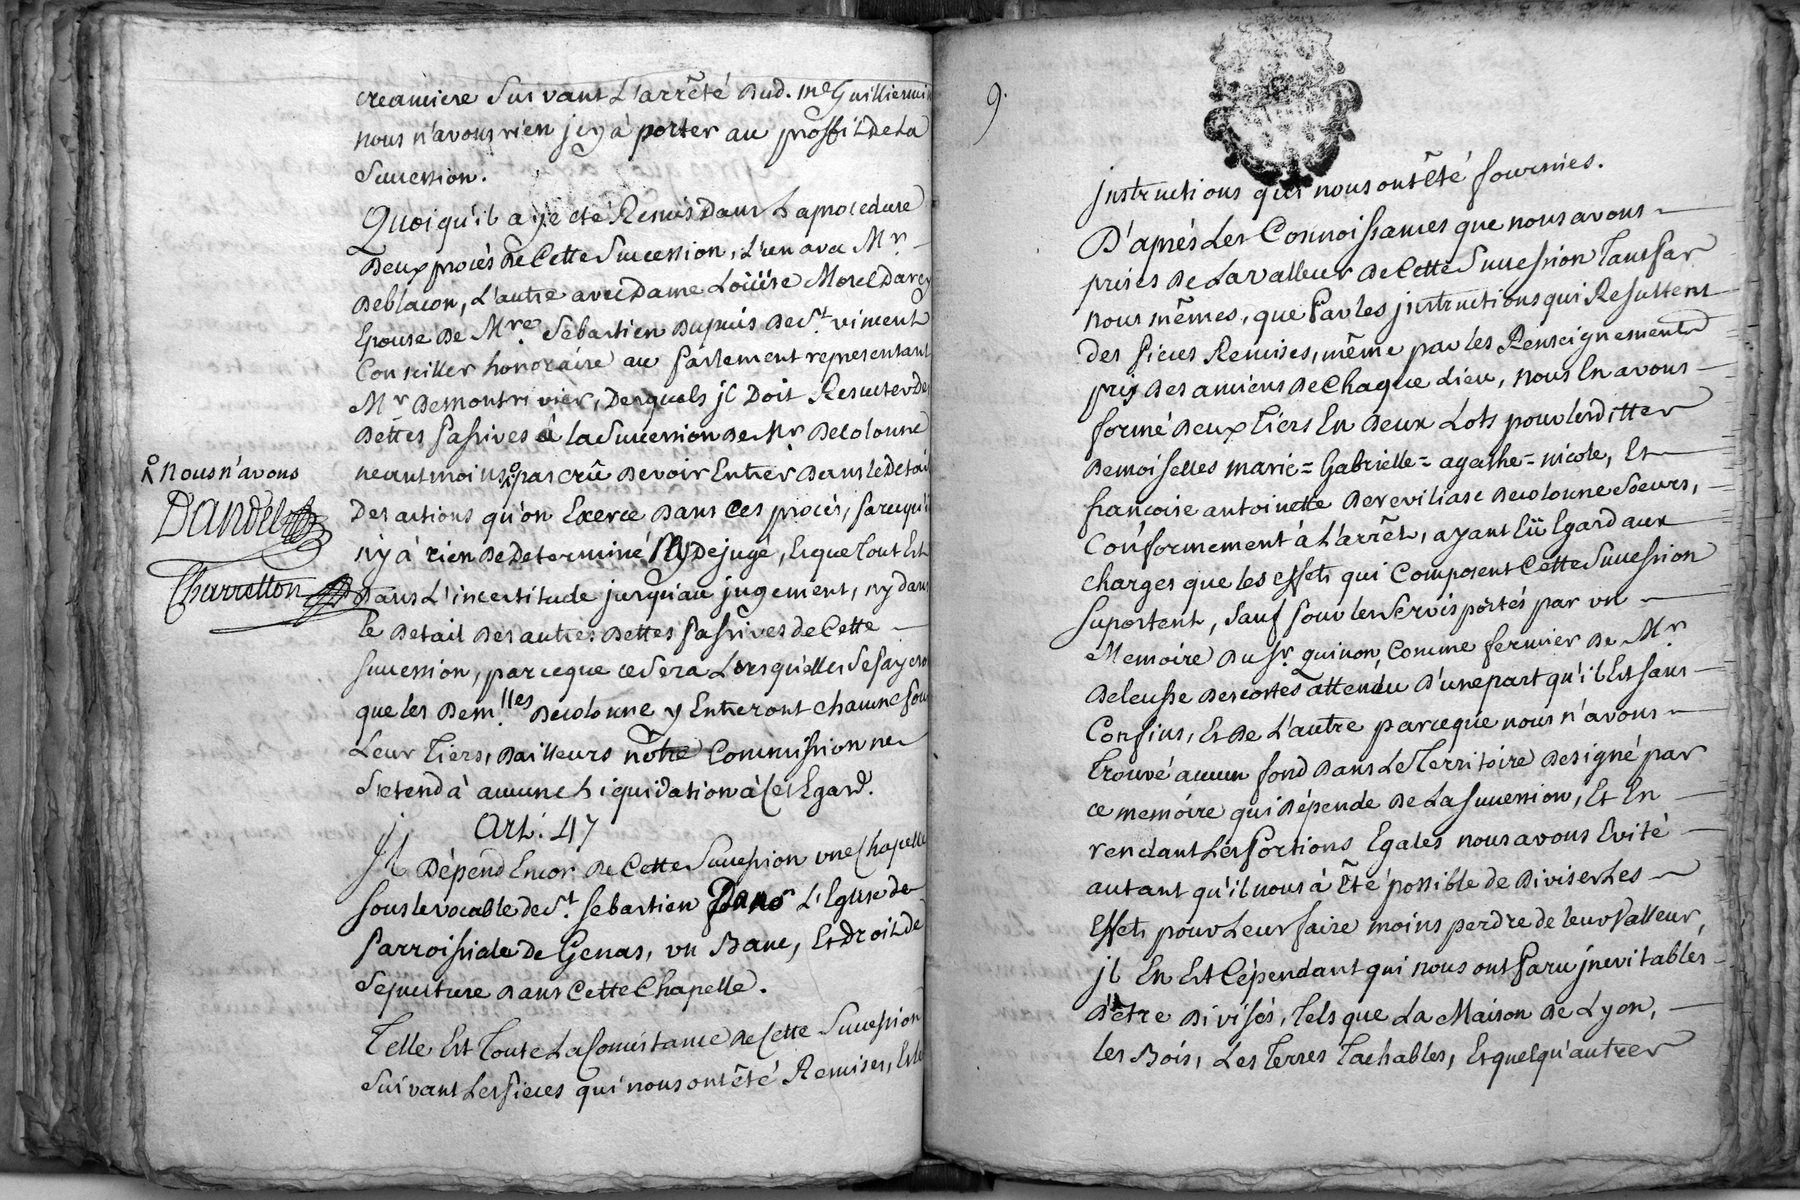 creanciere Suivant L'arrêté dud. me Guilliermin
nous n'avons rien jcy à porter au proffit De La
Succession.
Quoiqu'il aye eté Remis Dans La procedure
Deux procés de Cette Succession, L'un avec Mr
Deblacon, L'autre avec Dame Loüise Morel Darcy
Epouse De Mre Sebastien Dupuis De St. vincent
Conseiller honoraire au Parlement representant
Mr Demontrivier, Desquels jl Doit Resulter Des
Dettes Passives à la Succession De Mr Decolonne
neantmoins pas crû Devoir Entrer Dans le Detail
Des actions qu'on Exerce Dans Ces procés, parcequ'il
n'y à rien De Determiné Ny De jugé, Et que Tout Est
Dans L'incertitude jusqu'au jugement, ny dans
le Detail Des autres Dettes Passives de Cette
Succession, parceque ce Sera Lorsqu'elles Se payeront
que les Dem.lles Decolonne y Entreront chacune pour
Leur Tiers, Dailleurs nôtre Commission ne
S'etend à aucune Liquidation à Cet Egard.
nous n'avons
Dandel
Charretton
Art. 47
Jl Dépend Encor De Cette Succession une Chapelle
Sous le vocable de St. Sebastien Dans L'Eglise de
Parroissiale de Genas, un Banc, Et droit De
Sepulture Dans Cette Chapelle.
Telle Est Toute La Consistance De Cette Succession
Suivant Les Pieces qui nous ont êté Remises, Et les
9.
jnstructions qui nous ont êté fournies.
D'aprés Les Connoissances que nous avons
prises De La valleur De Cette Succession Tant Par
nous mêmes, que Par les jnstructions qui Resultent
des Pieces Remises, même par les Renseignements
pris Des anciens De Chaque Lieu, nous En avons
formé Deux Tiers En Deux Lots pour lesditter
Demoiselles marie = Gabrielle = agathe = nicole, Et
francoise antoinette Dereviliasc Decolonne Soeurs,
Conformement à L'arrêt, ayant Eü Egard aux
charges que les effets qui Composent Cette Succession
Suportent, Sauf pour les Servis portés par un
Memoire Du Sr. quinon, Comme fermier De Mr
Deleusse Descostes attendu D'une part qu'il Est Sans
Confins, Et De L'autre parceque nous n'avons
Trouvé aucun fond Dans Le Territoire Designé par
ce memoire qui Dépende De La Succession, Et En
rendant Les Portions Egales nous avons Evité
autant qu'il nous à Eté possible de Diviser Les
Effets pour Leur faire moins perdre de leur Valleur,
jl En Est Cépendant qui nous ont Paru jnevitables
D'être Divisés, Tels que La Maison De Lyon,
les Bois, Les Terres Tachables, Et quelqu'autres